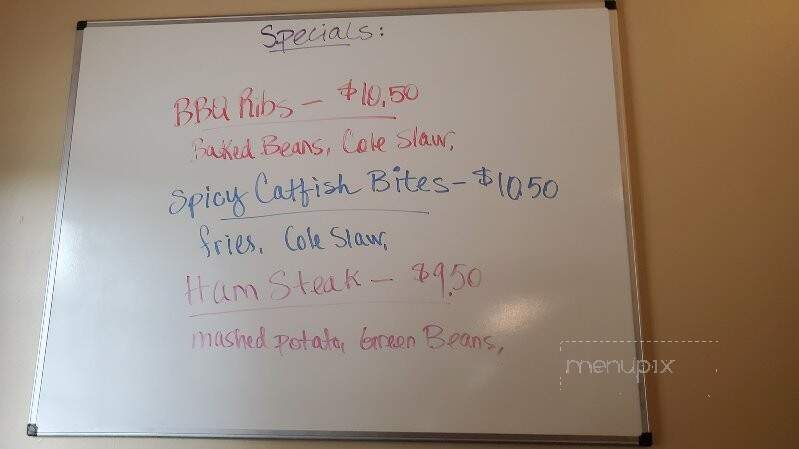 Specials:
BBQ Ribs - $10.50
Baked Beans, Cole Slaw,
Spicy Catfish Bites - $10.50
fries, Cole Slaw,
Ham Steak - $9.50
mashed potato, Green Beans,
menupix